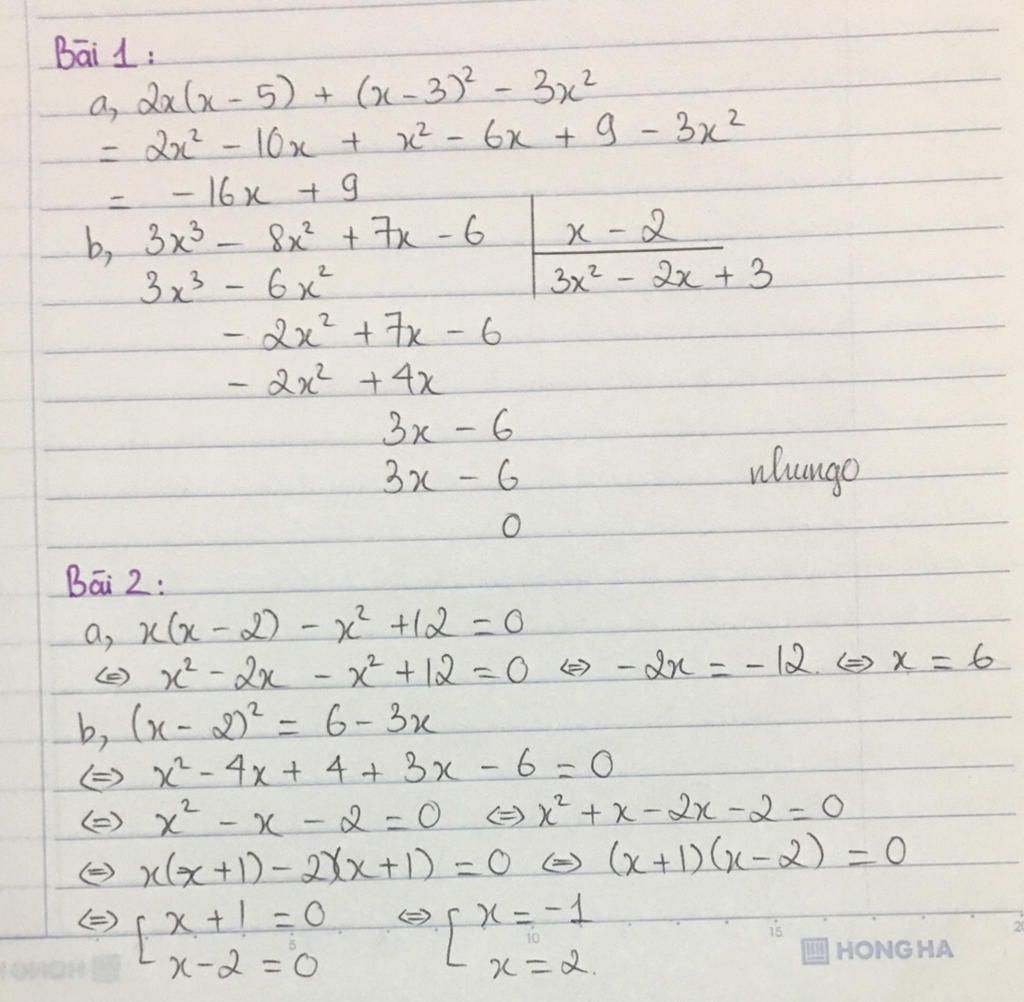 Bài 1:
a, 2x(x - 5) + (x - 3)² - 3x²
= 2x² - 10x + x² - 6x + 9 - 3x²
= -16x + 9
b, 3x³ - 8x² + 7x - 6 | x - 2
3x³ - 6x² | 3x² - 2x + 3
- 2x² + 7x - 6
- 2x² + 4x
3x - 6
3x - 6
nhungo
0
Bài 2:
a, x(x - 2) - x² + 12 = 0
⇔ x² - 2x - x² + 12 = 0 ⇔ -2x = -12. ⇔ x = 6
b, (x - 2)² = 6 - 3x
⇔ x² - 4x + 4 + 3x - 6 = 0
⇔ x² - x - 2 = 0 ⇔ x² + x - 2x - 2 = 0
⇔ x(x + 1) - 2(x + 1) = 0 ⇔ (x + 1)(x - 2) = 0
⇔ [ x + 1 = 0 ⇔ [ x = -1
x - 2 = 0 x = 2.
5 10 15 20
HONG HA